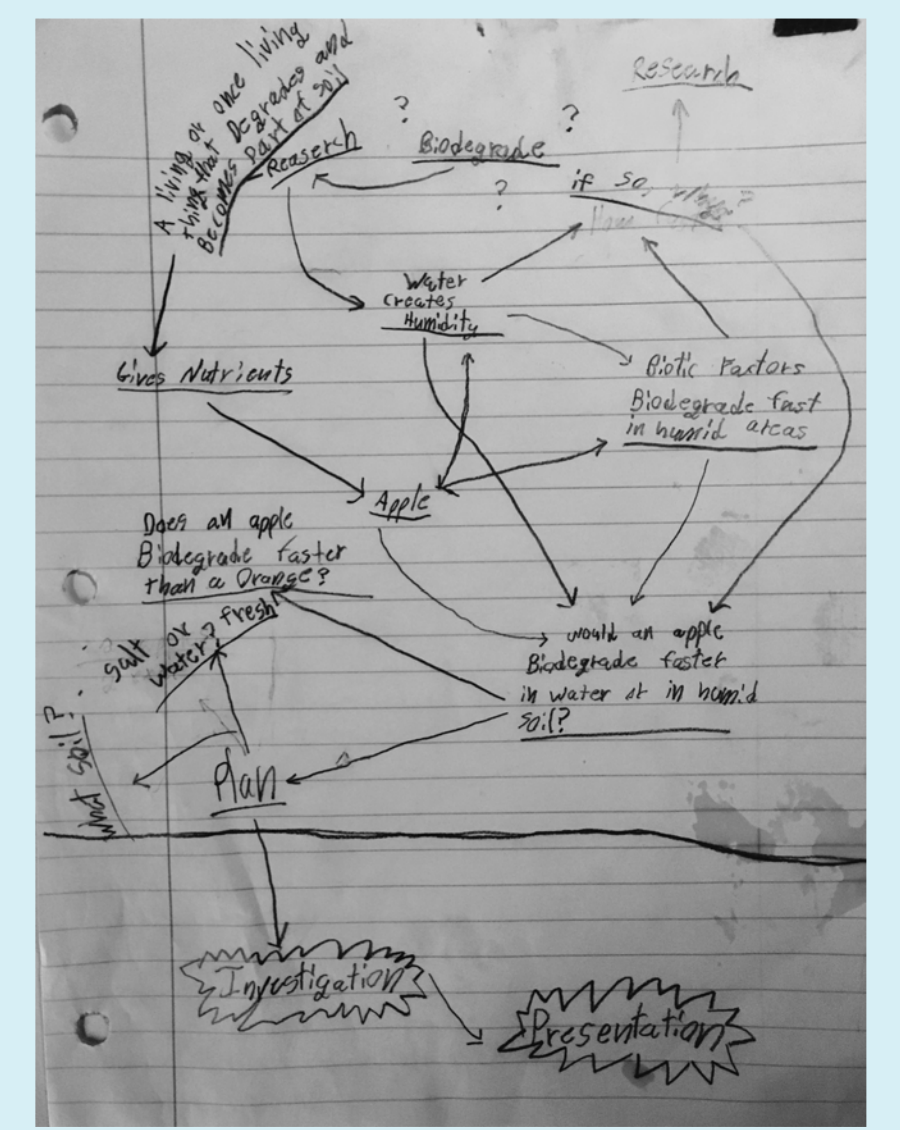 A living or once living
thing that Degrades and
Becomes part of soil
Reaserch
?
Biodegrade
?
?
Research
if so,
Water
Creates
Humidity
Gives Nutrients
Biotic Factors
Biodegrade fast
in humid areas
Apple
Does an apple
Biodegrade faster
than a Orange?
salt or fresh
water?
what soil?
would an apple
Biodegrade faster
in water or in humid
soil?
Plan
Investigation
Presentation